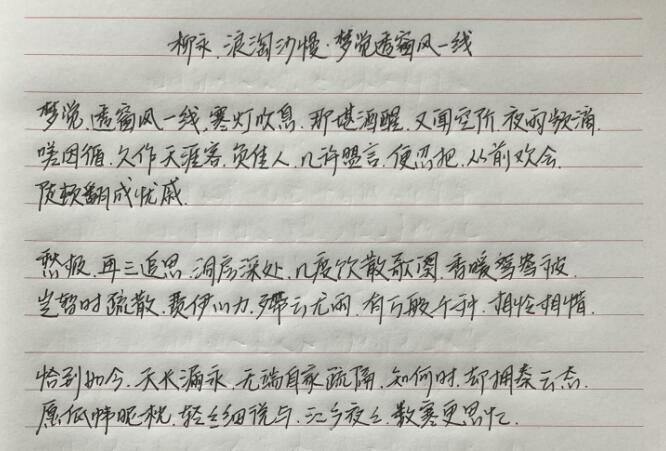 柳永.浪淘沙慢·梦觉透窗风一线
梦觉.透窗风一线.寒灯吹息.那堪酒醒.又闻空阶.夜雨频滴.
嗟因循.久作天涯客.负佳人.几许盟言.便忍把.从前欢会.
陡顿翻成忧戚.
愁极.再三追思.洞房深处.几度饮散歌阕.香暖鸳鸯被.
岂暂时疏散.费伊心力.殢云尤雨.有万般千种.相怜相惜.
恰到如今.天长漏永.无端自家疏隔.知何时.却拥秦云态.
愿低帏昵枕.轻轻细说与.江乡夜夜.数寒更思忆.